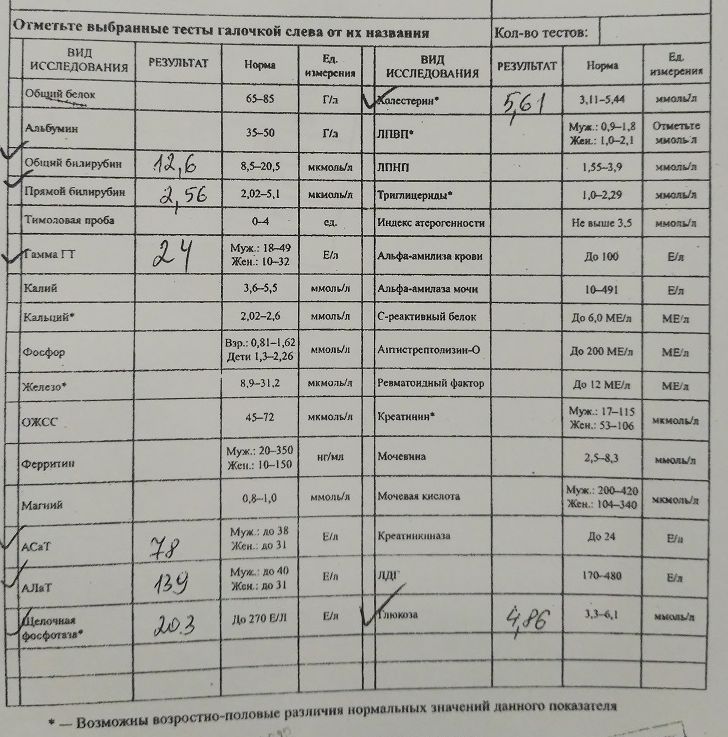 Отметьте выбранные тесты галочкой слева от их названия Кол-во тестов:
ВИД ИССЛЕДОВАНИЯ РЕЗУЛЬТАТ Норма Ед. измерения ВИД ИССЛЕДОВАНИЯ РЕЗУЛЬТАТ Норма Ед. измерения
Общий белок 65–85 Г/л Холестерин* 5,61 3,11–5,44 ммоль/л
Альбумин 35–50 Г/л ЛПВП* Муж.: 0,9–1,8 Жен.: 1,0–2,1 Отметьте ммоль/л
Общий билирубин 12,6 8,5–20,5 мкмоль/л ЛПНП 1,55–3,9 ммоль/л
Прямой билирубин 2,56 2,02–5,1 мкмоль/л Триглицериды* 1,0–2,29 ммоль/л
Тимоловая проба 0–4 ед. Индекс атерогенности Не выше 3,5 ммоль/л
Гамма ГТ 24 Муж.: 18–49 Жен.: 10–32 Е/л Альфа-амилиза крови До 100 Е/л
Калий 3,6–5,5 ммоль/л Альфа-амилаза мочи 10–491 Е/л
Кальций* 2,02–2,6 ммоль/л С-реактивный белок До 6,0 МЕ/л МЕ/л
Фосфор Взр.: 0,81–1,62 Дети 1,3–2,26 ммоль/л Антистрептолизин-О До 200 МЕ/л МЕ/л
Железо* 8,9–31,2 мкмоль/л Ревматоидный фактор До 12 МЕ/л МЕ/л
ОЖСС 45–72 мкмоль/л Креатинин* Муж.: 17–115 Жен.: 53–106 мкмоль/л
Ферритин Муж.: 20–350 Жен.: 10–150 нг/мл Мочевина 2,5–8,3 ммоль/л
Магний 0,8–1,0 ммоль/л Мочевая кислота Муж.: 200–420 Жен.: 104–340 мкмоль/л
АСаТ 78 Муж.: до 38 Жен.: до 31 Е/л Креатинкиназа До 24 Е/л
АЛаТ 139 Муж.: до 40 Жен.: до 31 Е/л ЛДГ 170–480 Е/л
Щелочная фосфотаза* 203 До 270 Е/Л Е/л Глюкоза 4,86 3,3–6,1 ммоль/л
* — Возможны возростно-половые различия нормальных значений данного показателя